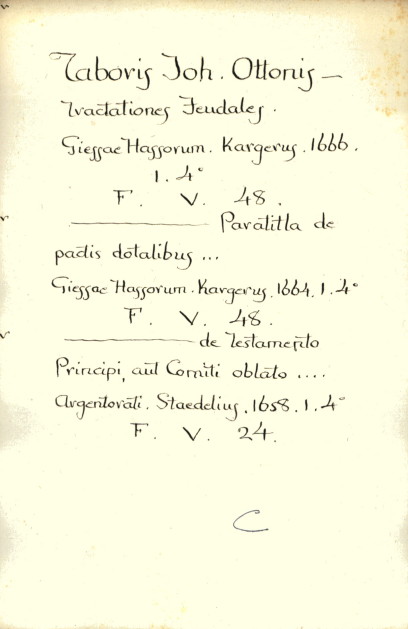 Taboris Joh. Ottonis —
Tractationes Feudales.
Giessae Hassorum. Kargerus. 1666.
1. 4°
F. V. 48.
——— Paratitla de
pactis dotalibus ...
Giessae Hassorum. Kargerus. 1664. 1. 4°
F. V. 48.
——— de Testamento
Principi, aut Comiti oblato ....
Argentorati. Staedelius. 1658. 1. 4°
F. V. 24.
C